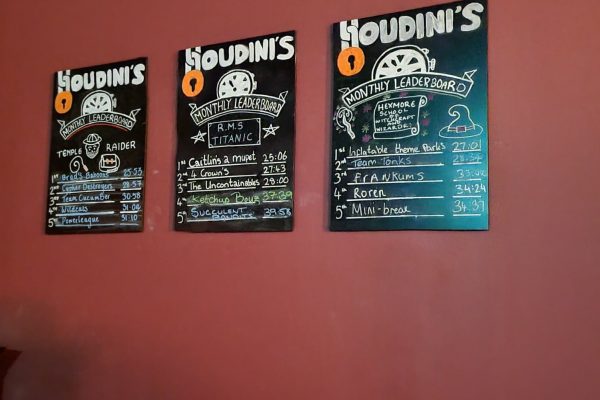 HOUDINI'S
MONTHLY LEADERBOARD
TEMPLE RAIDER
1st Brad's Banana's 25:53
2nd Cypher Destroyers 28:57
3rd Team Cucumber 30:58
4th Wildcats 31:06
5th Powerleague 31:10
HOUDINI'S
MONTHLY LEADERBOARD
R.M.S
TITANIC
1st Caitlin's a mupet 25:06
2nd 4 Crown's 27:43
3rd The Uncontainables 29:00
4th Ketchup Boyz 37:39
5th Succulent Bandits 39:58
HOUDINI'S
MONTHLY LEADERBOARD
HEXMORE
SCHOOL
WITCHCRAFT
AND
WIZARDRY
1st Inflatable theme Park's 27:01
2nd Team Tonks 28:34
3rd FRANKUMS
4th Roren 34:24
5th Mini-break 34:37